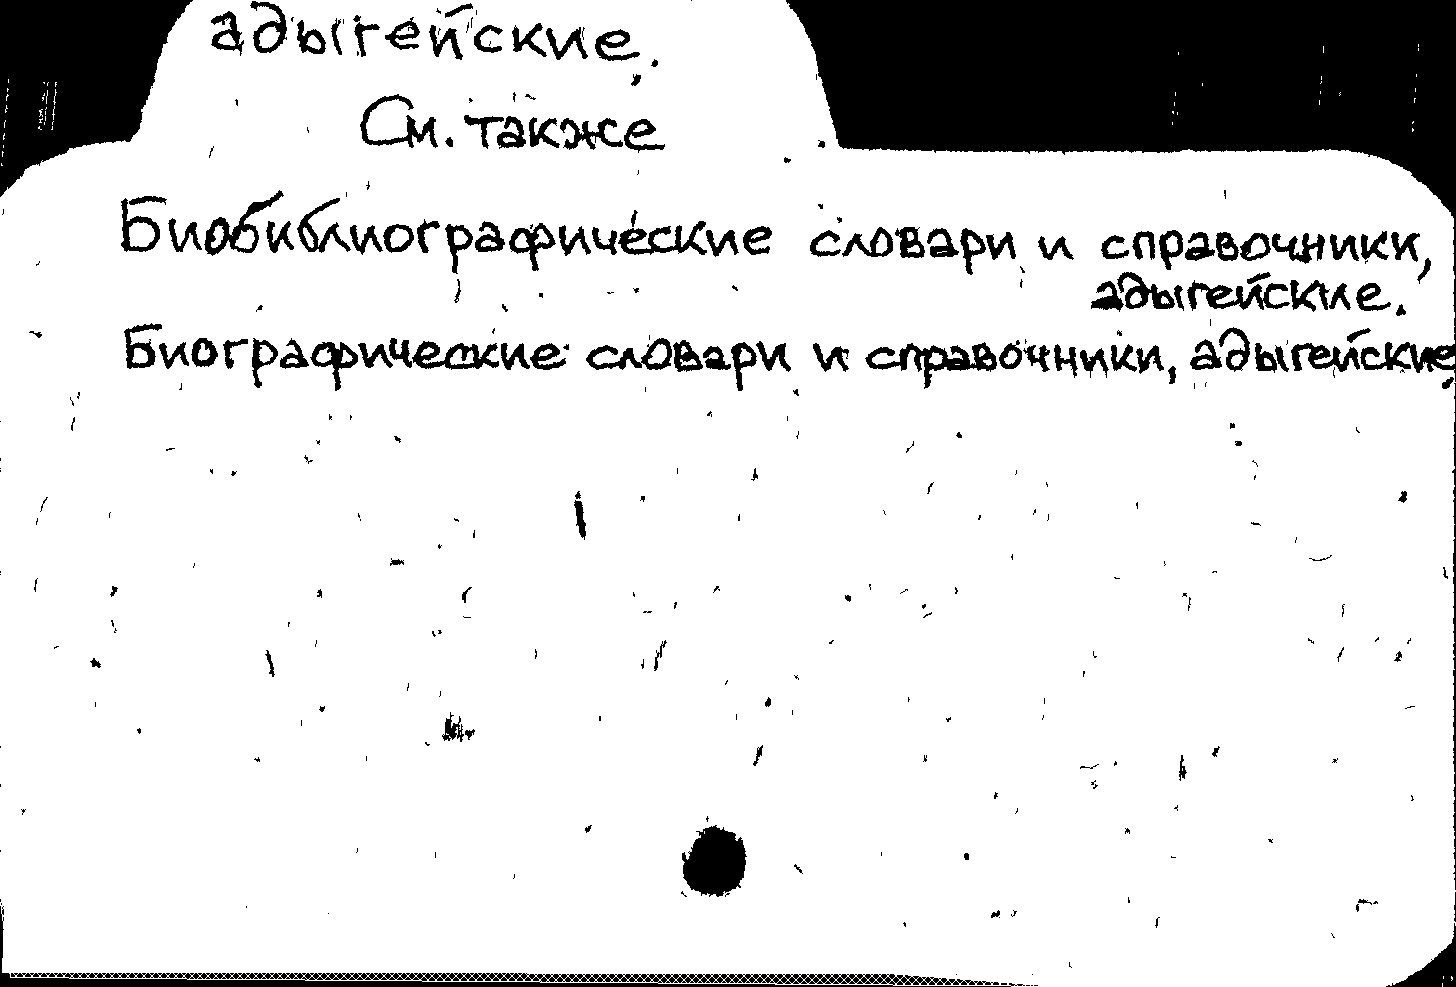 адыгейские.
См. также
Биобиблиографические словари и справочники,
адыгейские.
Биографические словари и справочники, адыгейские.